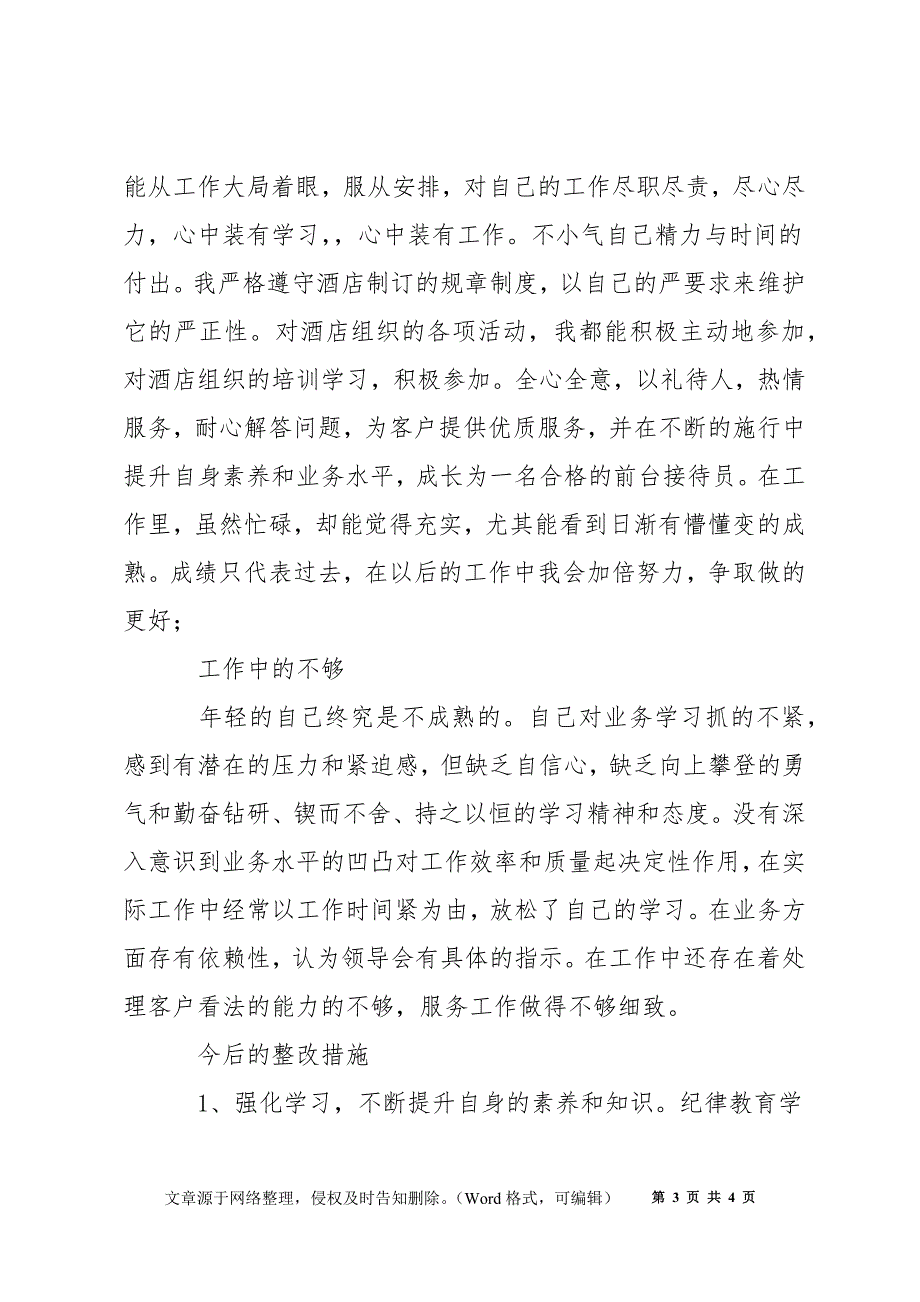 能从工作大局着眼，服从安排，对自己的工作尽职尽责，尽心尽
力，心中装有学习，，心中装有工作。不小气自己精力与时间的
付出。我严格遵守酒店制订的规章制度，以自己的严要求来维护
它的严正性。对酒店组织的各项活动，我都能积极主动地参加，
对酒店组织的培训学习，积极参加。全心全意，以礼待人，热情
服务，耐心解答问题，为客户提供优质服务，并在不断的施行中
提升自身素养和业务水平，成长为一名合格的前台接待员。在工
作里，虽然忙碌，却能觉得充实，尤其能看到日渐有懵懂变的成
熟。成绩只代表过去，在以后的工作中我会加倍努力，争取做的
更好；
工作中的不够
年轻的自己终究是不成熟的。自己对业务学习抓的不紧，
感到有潜在的压力和紧迫感，但缺乏自信心，缺乏向上攀登的勇
气和勤奋钻研、锲而不舍、持之以恒的学习精神和态度。没有深
入意识到业务水平的凹凸对工作效率和质量起决定性作用，在实
际工作中经常以工作时间紧为由，放松了自己的学习。在业务方
面存有依赖性，认为领导会有具体的指示。在工作中还存在着处
理客户看法的能力的不够，服务工作做得不够细致。
今后的整改措施
1、强化学习，不断提升自身的素养和知识。纪律教育学
文章源于网络整理，侵权及时告知删除。（Word 格式，可编辑） 第 3 页 共 4 页